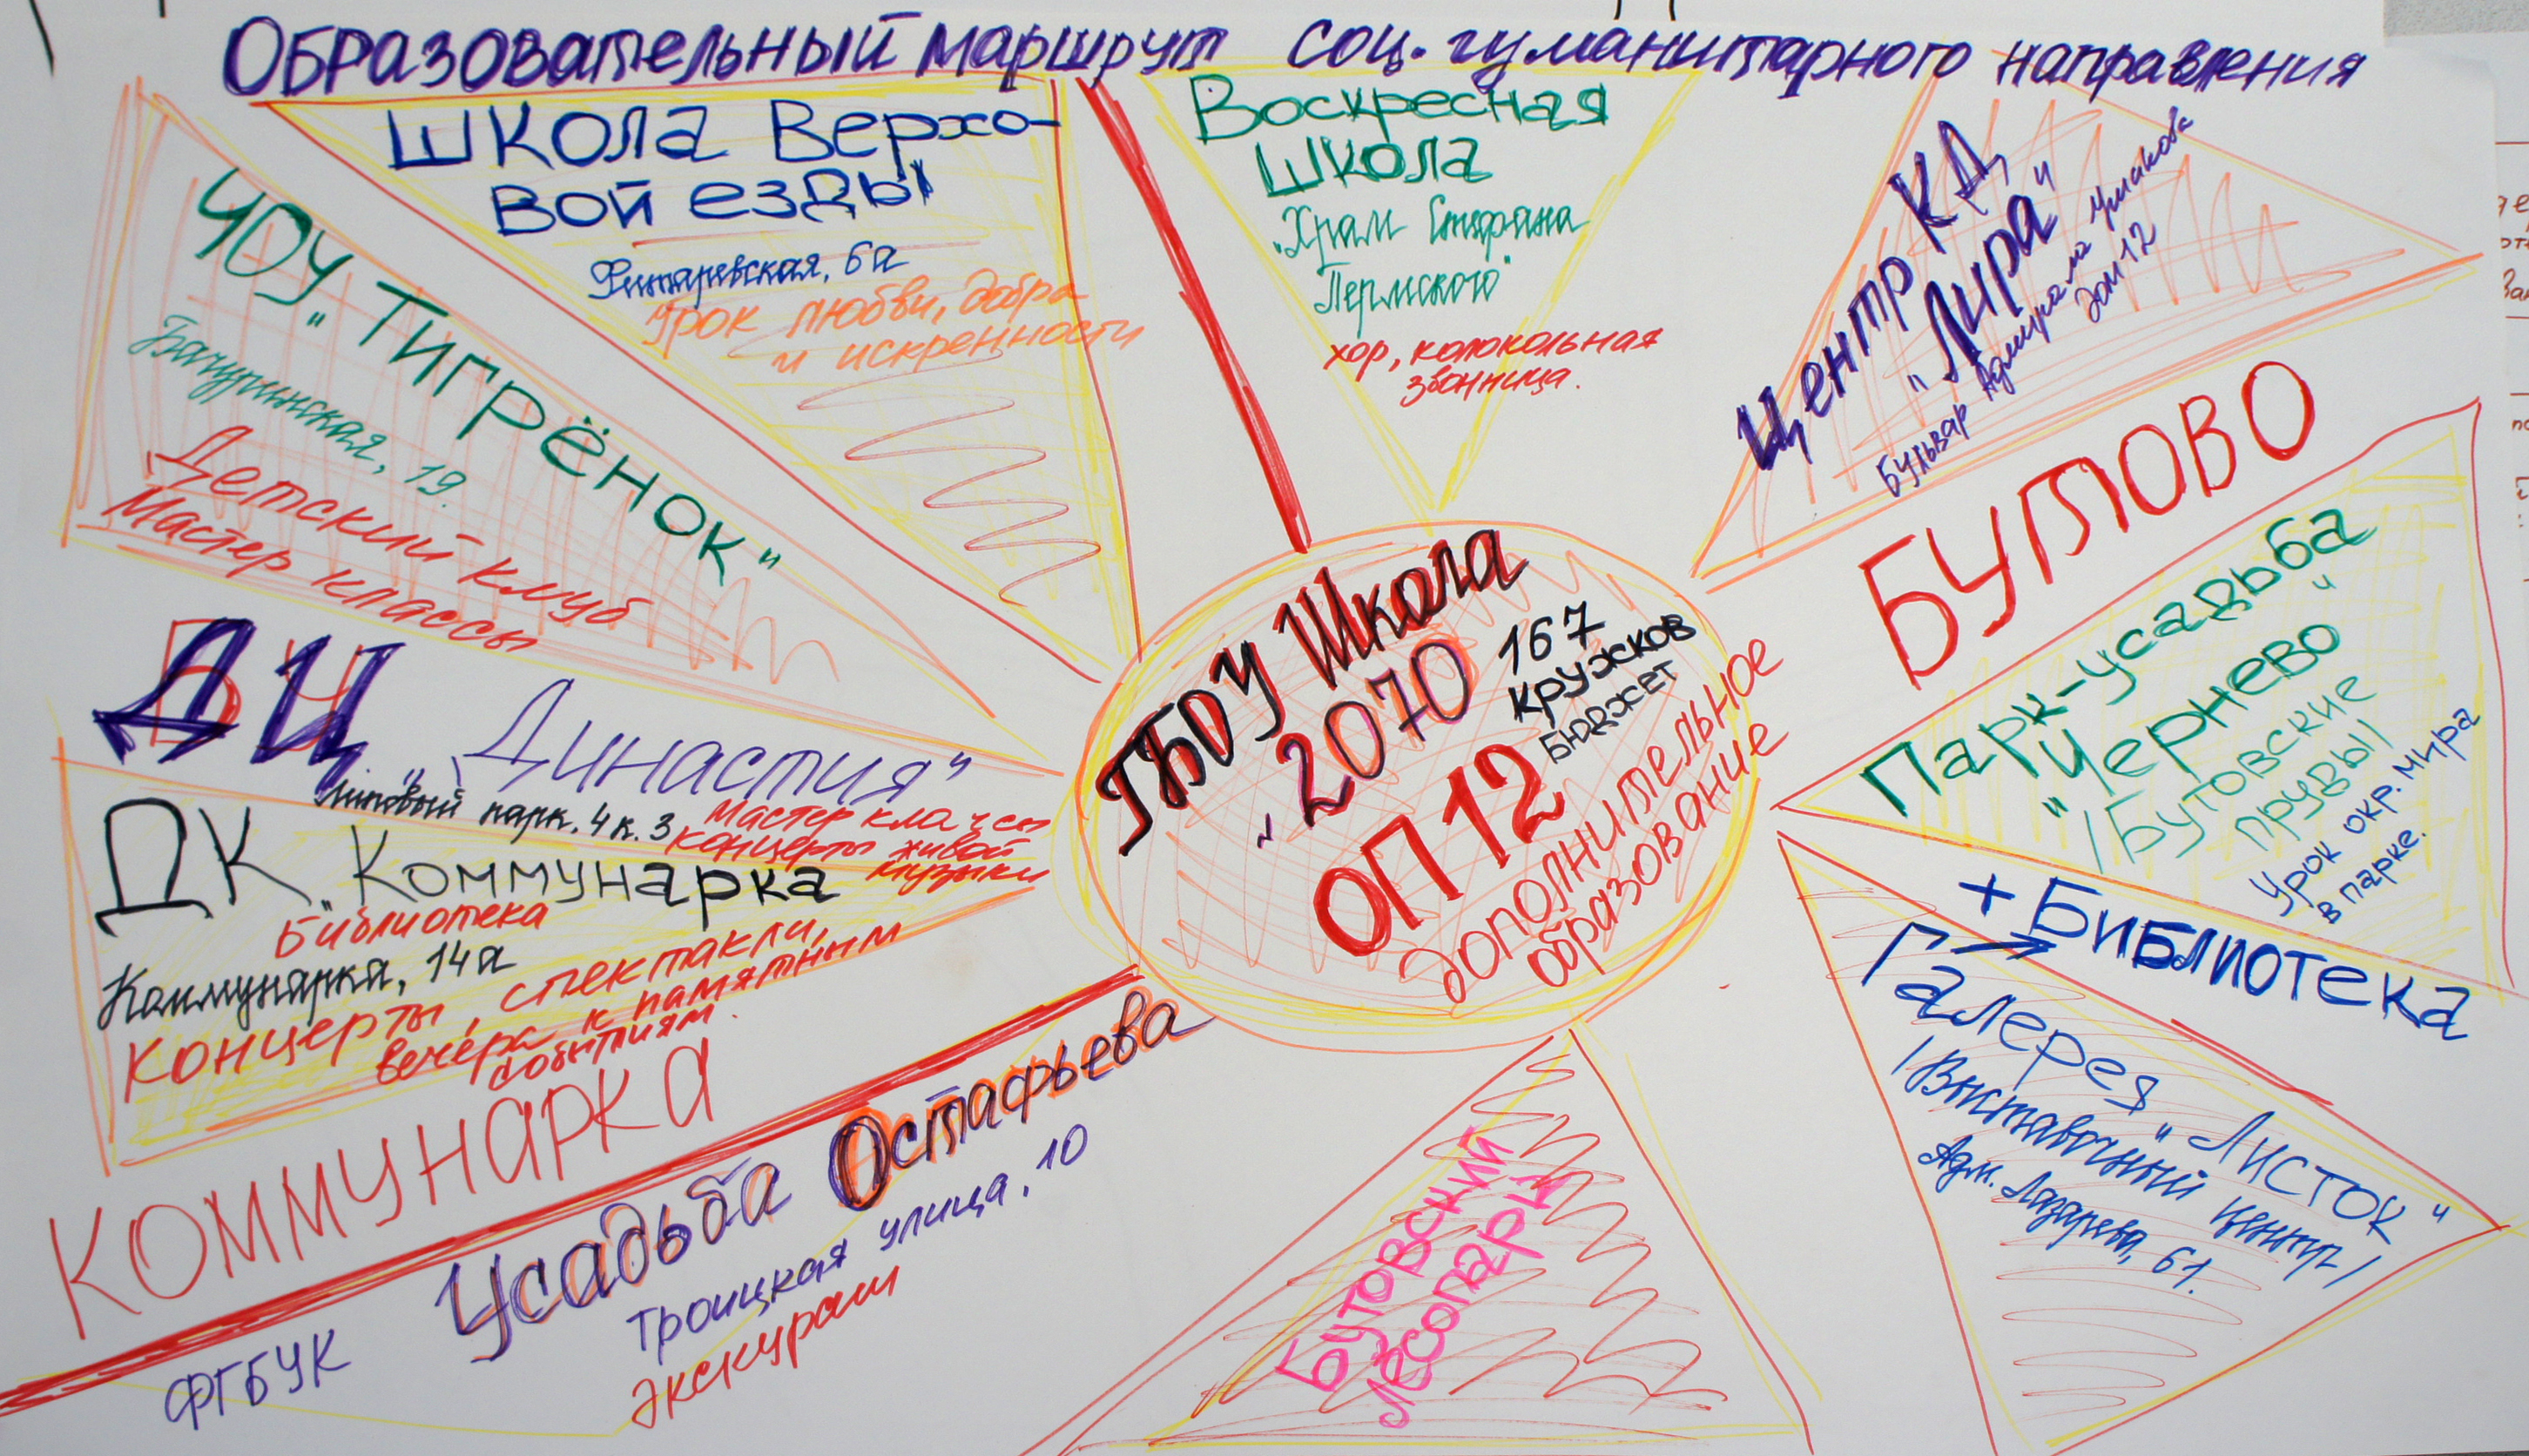 Образовательный маршрут соц. гуманитарного направления
Школа Верхо-
вой езды
Фитарёвская, 6а
Урок любви, добра
и искренности
Воскресная
школа
"Храм Стефана
Пермского"
хор, колокольная
звонница.
Центр КД
"Лира"
Бульвар Адмирала Ушакова
дом 12
ЧОУ "Тигрёнок"
Бачуринская, 19.
Детский клуб
Мастер классы
ДЦ "Династия"
Липовый парк. 4 к. 3
Мастер классы
концерты живой
музыки
ДК "Коммунарка
Библиотека
Коммунарка, 14а
Концерты, спектакли,
вечера к памятным
событиям.
КОММУНАРКА
ГБОУ Школа
"2070
167
кружков
бюджет
ОП 12
дополнительное
образование
БУТОВО
Парк-усадьба
"Чернево"
/Бутовские
пруды/
Урок окр. мира
в парке.
+ Библиотека
Галерея "Листок"
/Выставочный центр/
Адм. Лазарева, 61.
Бутовский
лесопарк
ФГБУК Усадьба Остафьева
Троицкая улица, 10
Экскурсии